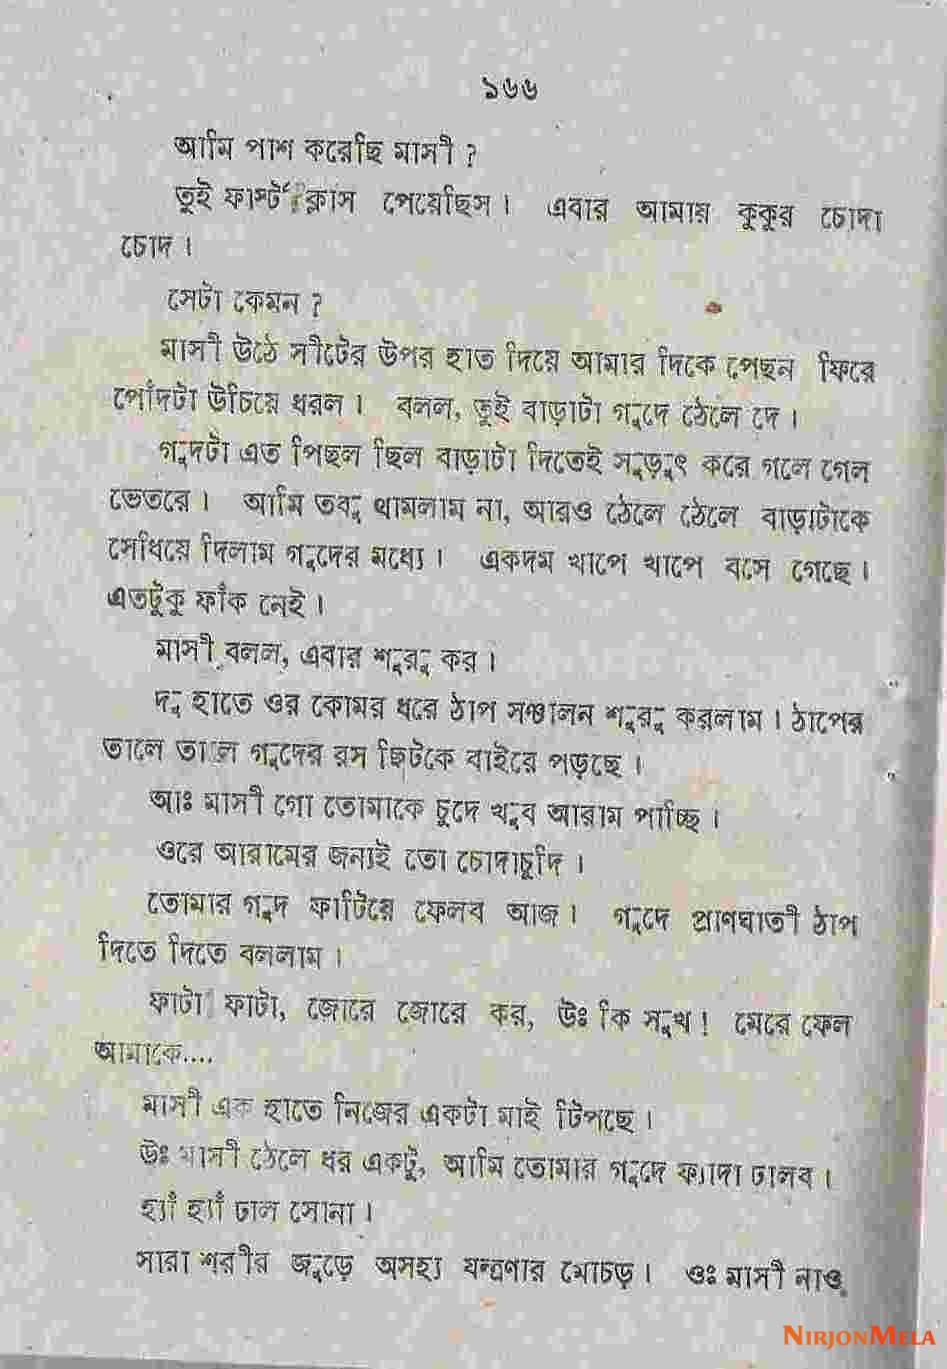 ১৬৬
আমি পাশ করেছি মাসী ?
তুই ফার্স্ট ক্লাস পেয়েছিস। এবার আমায় কুকুর চোদা
চোদ।
সেটা কেমন ?
মাসী উঠে সীটের উপর হাত দিয়ে আমার দিকে পেছন ফিরে
পোঁদটা উঁচিয়ে ধরল। বলল, তুই বাড়াটা গুদে ঠেলে দে।
গুদটা এত পিছল ছিল বাড়াটা দিতেই সুড়ুৎ করে গলে গেল
ভেতরে। আমি তবু থামলাম না, আরও ঠেলে ঠেলে বাড়াটাকে
সেধিয়ে দিলাম গুদের মধ্যে। একদম খাপে খাপে বসে গেছে।
এতটুকু ফাঁক নেই।
মাসী বলল, এবার শুরু কর।
দু হাতে ওর কোমর ধরে ঠাপ সঞ্চালন শুরু করলাম। ঠাপের
তালে তালে গুদের রস ছিটকে বাইরে পড়ছে।
আঃ মাসী গো তোমাকে চুদে খুব আরাম পাচ্ছি।
ওরে আরামের জন্যই তো চোদাচুদি।
তোমার গুদ ফাটিয়ে ফেলব আজ। গুদে প্রাণঘাতী ঠাপ
দিতে দিতে বললাম।
ফাটা ফাটা, জোরে জোরে কর, উঃ কি সুখ! মেরে ফেল
আমাকে....
মাসী এক হাতে নিজের একটা মাই টিপছে।
উঃ মাসী ঠেলে ধর একটু, আমি তোমার গুদে ফ্যাদা ঢালব।
হ্যাঁ হ্যাঁ ঢাল সোনা।
সারা শরীর জুড়ে অসহ্য যন্ত্রণার মোচড়। ওঃ মাসী নাও
NIRJONMELA